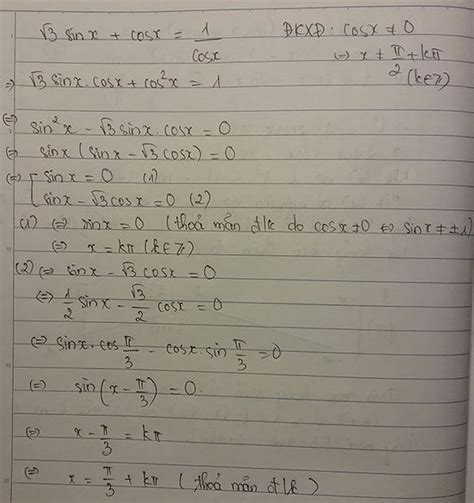 √3 sinx + cosx = 1/cosx   ĐKXĐ: cosx ≠ 0
⇔ x ≠ π/2 + kπ (k∈Z)
⇒ √3 sinx.cosx + cos²x = 1
⇔ sin²x - √3 sinx.cosx = 0
⇔ sinx (sinx - √3 cosx) = 0
⇔ [ sinx = 0 (1)
sinx - √3 cosx = 0 (2)
(1) ⇔ sinx = 0 (thoả mãn đ/k do cosx ≠ 0 ⇔ sinx ≠ ±1)
⇔ x = kπ (k∈Z)
(2) ⇔ sinx - √3 cosx = 0
⇔ 1/2 sinx - √3/2 cosx = 0
⇔ sinx.cos π/3 - cosx.sin π/3 = 0
⇔ sin(x - π/3) = 0.
⇔ x - π/3 = kπ
⇔ x = π/3 + kπ (thoả mãn đ/k)